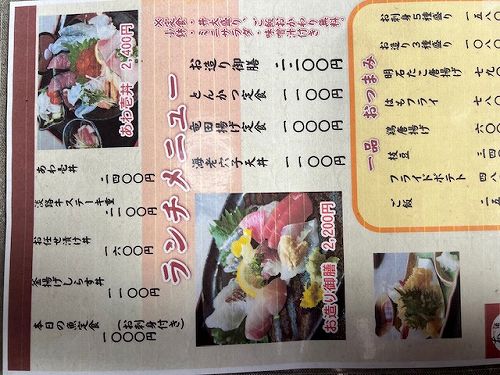 ランチメニュー
※定食・丼大盛り、ご飯おかわり無料。
小鉢・ミニサラダ・味噌汁付き
お造り御膳 二二〇〇円
とんかつ定食 一一〇〇円
竜田揚げ定食 一〇〇〇円
海老穴子天丼 一一〇〇円
あわ壱丼 2,400円
あわ壱丼 二四〇〇円
淡路牛ステーキ重 二一〇〇円
お任せ漬け丼 一六〇〇円
釜揚げしらす丼 一一〇〇円
本日の魚定食 （お刺身付き） 一〇〇〇円
お造り御膳 2,200円
一品 おつまみ
お刺身５種盛り 一五八
お造り３種盛り 一〇八
明石だこ唐揚げ 七九
はもフライ 七八
鶏唐揚げ
枝豆
フライドポテト 四八
ご飯 一五